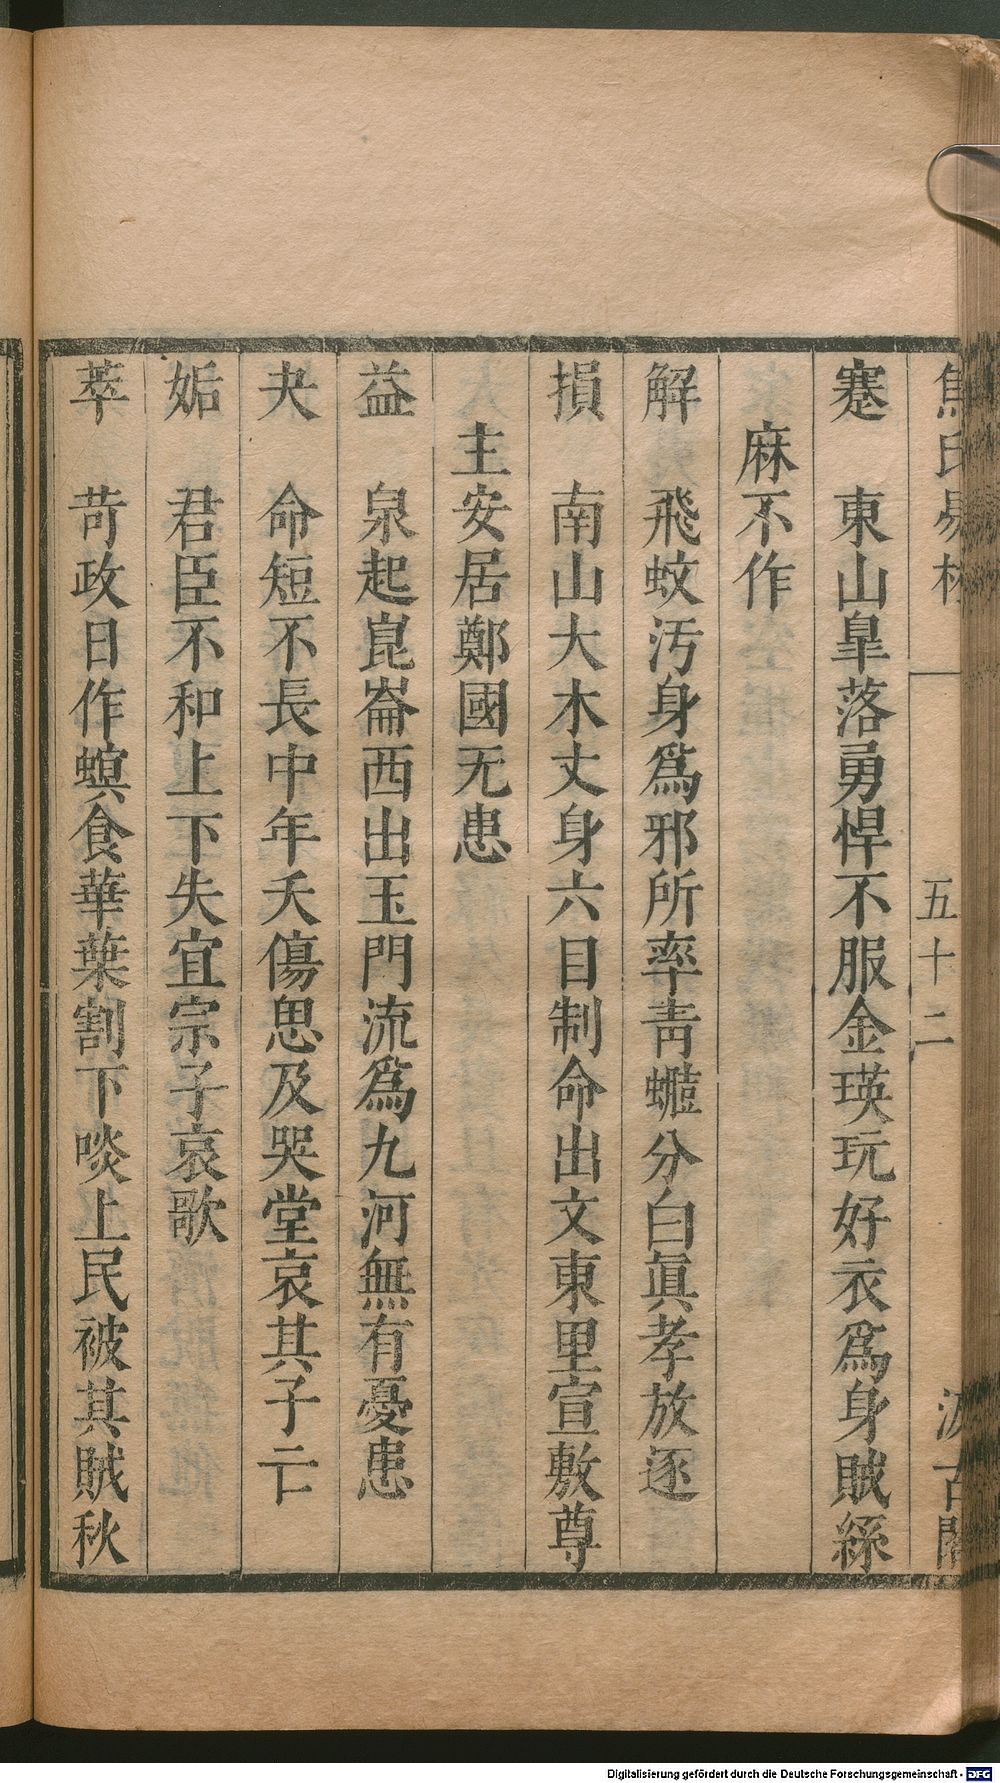 焦氏易林 五十二 汲古閣
蹇 東山臯落勇悍不服金瑛玩好衣爲身賊絲
麻不作
解 飛蚊汚身爲邪所率靑蠅分白眞孝放逐
損 南山大木文身六目制命出文東里宣敷尊
主安居鄭國无患
益 泉起崑崙西出玉門流爲九河無有憂患
夬 命短不長中年夭傷思及哭堂哀其子亡
姤 君臣不和上下失宜宗子哀歌
萃 苛政日作螟食華葉割下啖上民被其賊秋
Digitalisierung gefördert durch die Deutsche Forschungsgemeinschaft - DFG